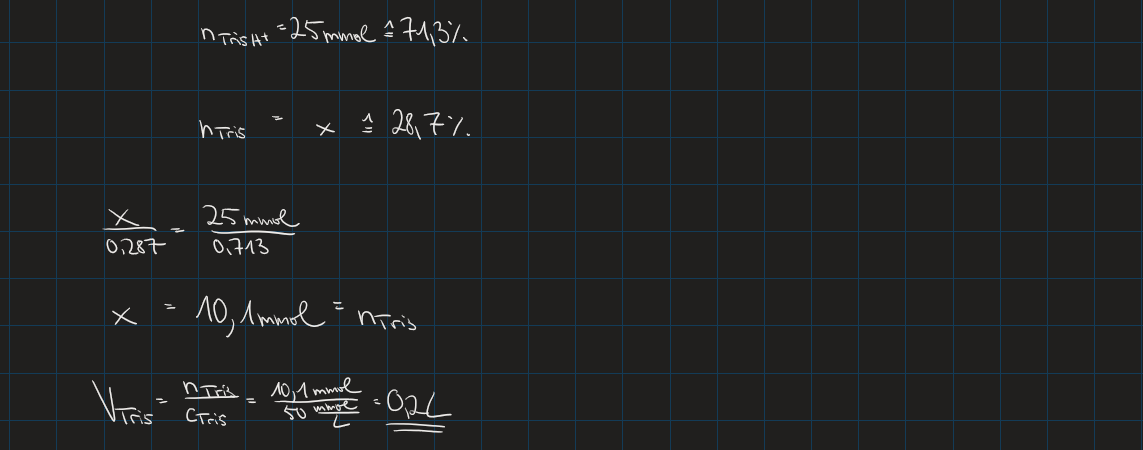 n_TrisH+ = 25 mmol ≙ 71,3%.
n_Tris = x ≙ 28,7%.
x/0,287 = 25 mmol/0,713
x = 10,1 mmol = n_Tris
V_Tris = n_Tris/c_Tris = 10,1 mmol/50 mmol/L = 0,2L